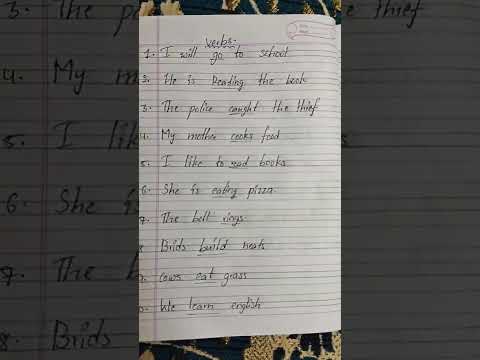 verbs.
1. I will go to school
2. He is Reading the book
3. The police caught the thief
4. My mother cooks food
5. I like to read books
6. She is eating pizza.
7. The bell rings.
8 Brids build nests
9. cows eat grass
0. We learn english